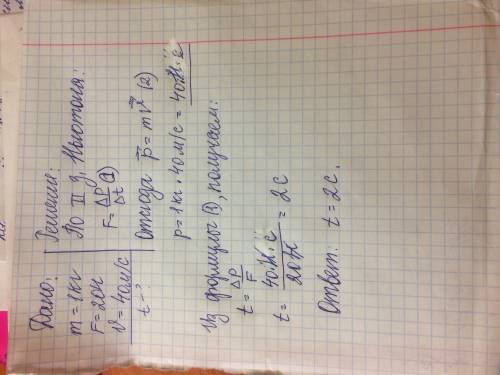 Дано:
m = 1кг
F = 20н
υ = 40м/с
t - ?
Решение:
По II з. Ньютона:
F = Δp/Δt (1)
Отсюда p = mυ (2)
p = 1кг · 40м/с = 40Н·с
Из формулы (1), получаем:
t = Δp/F
t = 40·Н·с/20Н = 2с
Ответ: t = 2с.